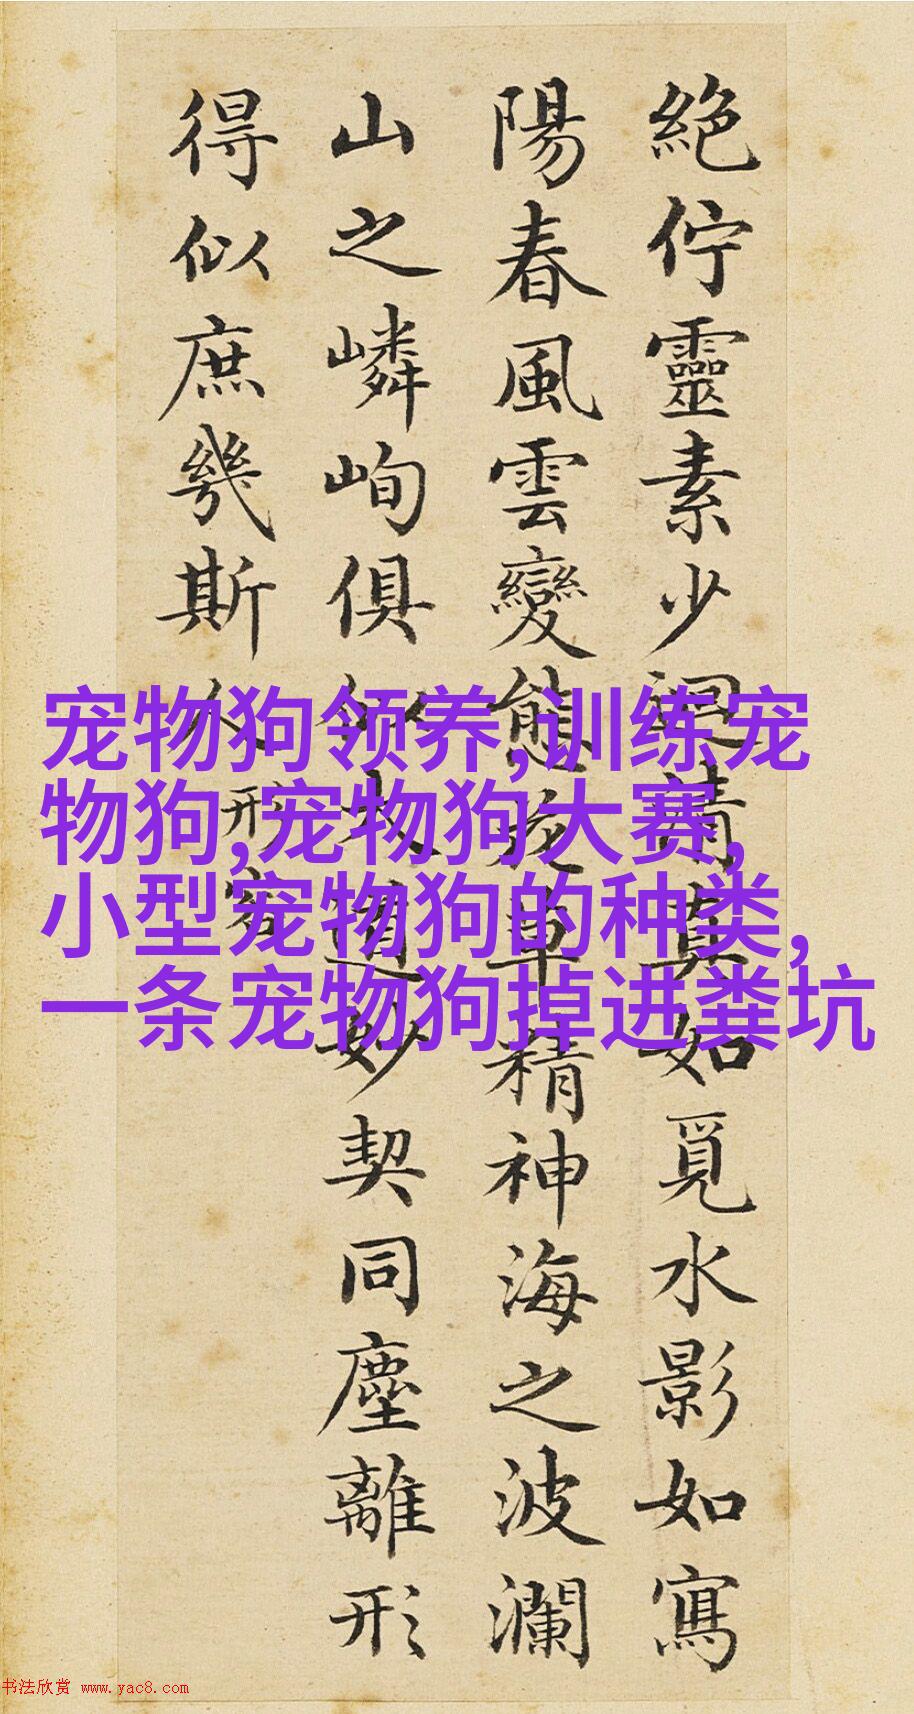 絶佇靈素少迴清真如覓水影如寫
陽春風雲變態花草精神海之波瀾
山之嶙峋俱似大道妙契同塵離形
得似庶幾斯人
形容
宠物狗领养,训练宠
物狗,宠物狗大赛,
小型宠物狗的种类,
一条宠物狗掉进粪坑
书法欣赏 www.yac8.com